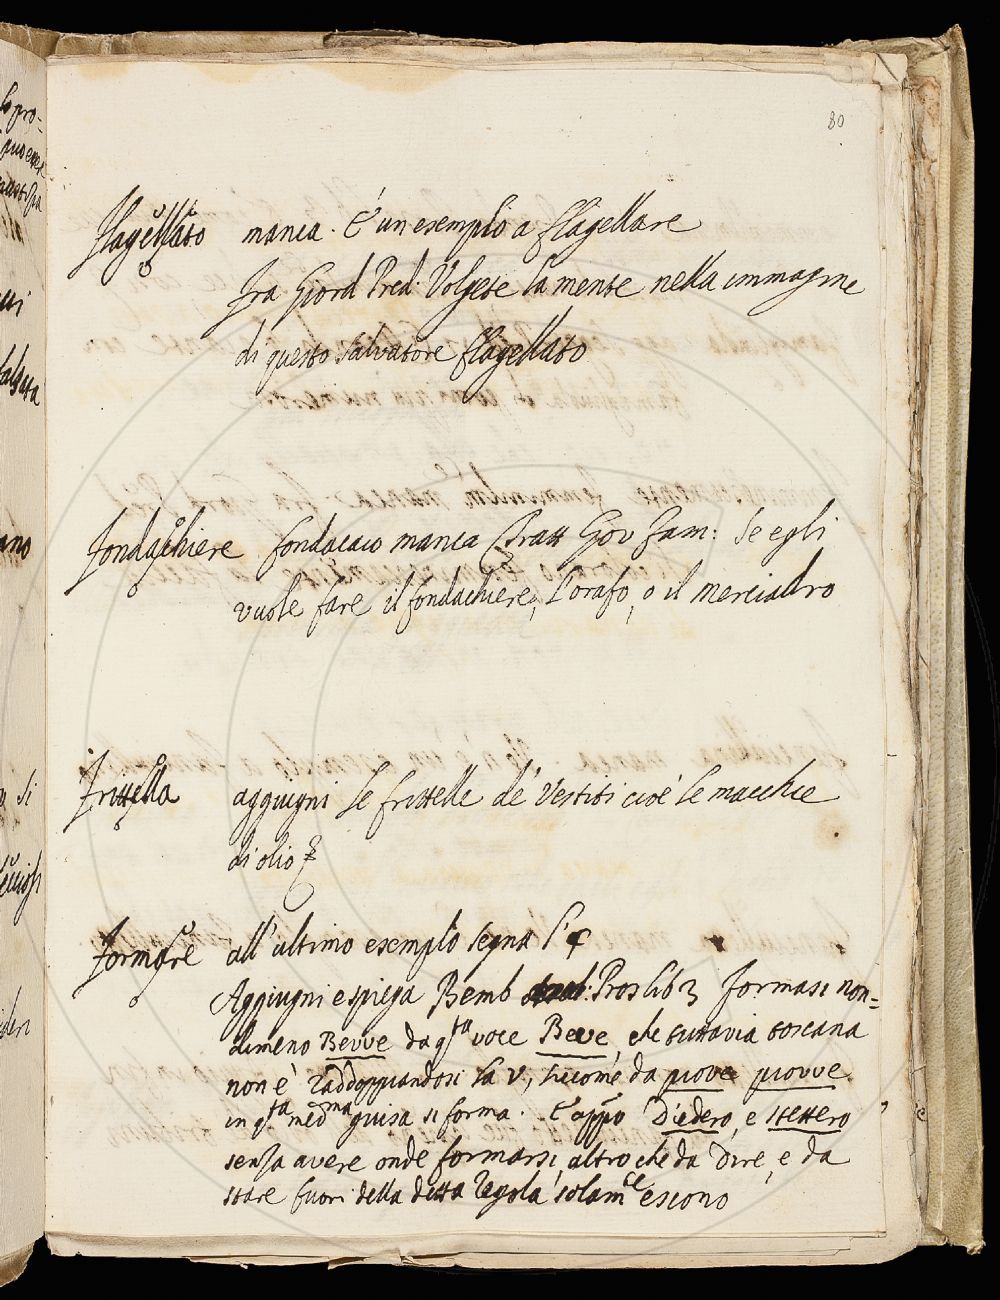 80
Flagellato manca. È un esemplo a flagellare
Fra Giord Pred: Volgete la mente nella immagine
di questo Salvatore flagellato
Fondachiere fondacaio manca Tratt Gov Fam: Se egli
vuole fare il fondachiere, l'orafo, o il merciadro
Frittella aggiugni le frittelle de' Vestiti cioè le macchie
di olio
Formare all'ultimo esemplo segna l'
Aggiugni e spiega Bemb Pros lib 3 formasi non=
dimeno Bevve da qta voce Beve, che tuttavia toscana
non è raddoppiandosi la v, siccome da piove piovve
in qta medma guisa si forma. E appo Diedero, e stettero
senza avere onde formarsi, altro che da Dire, e da
stare fuori della detta regola solamte escono